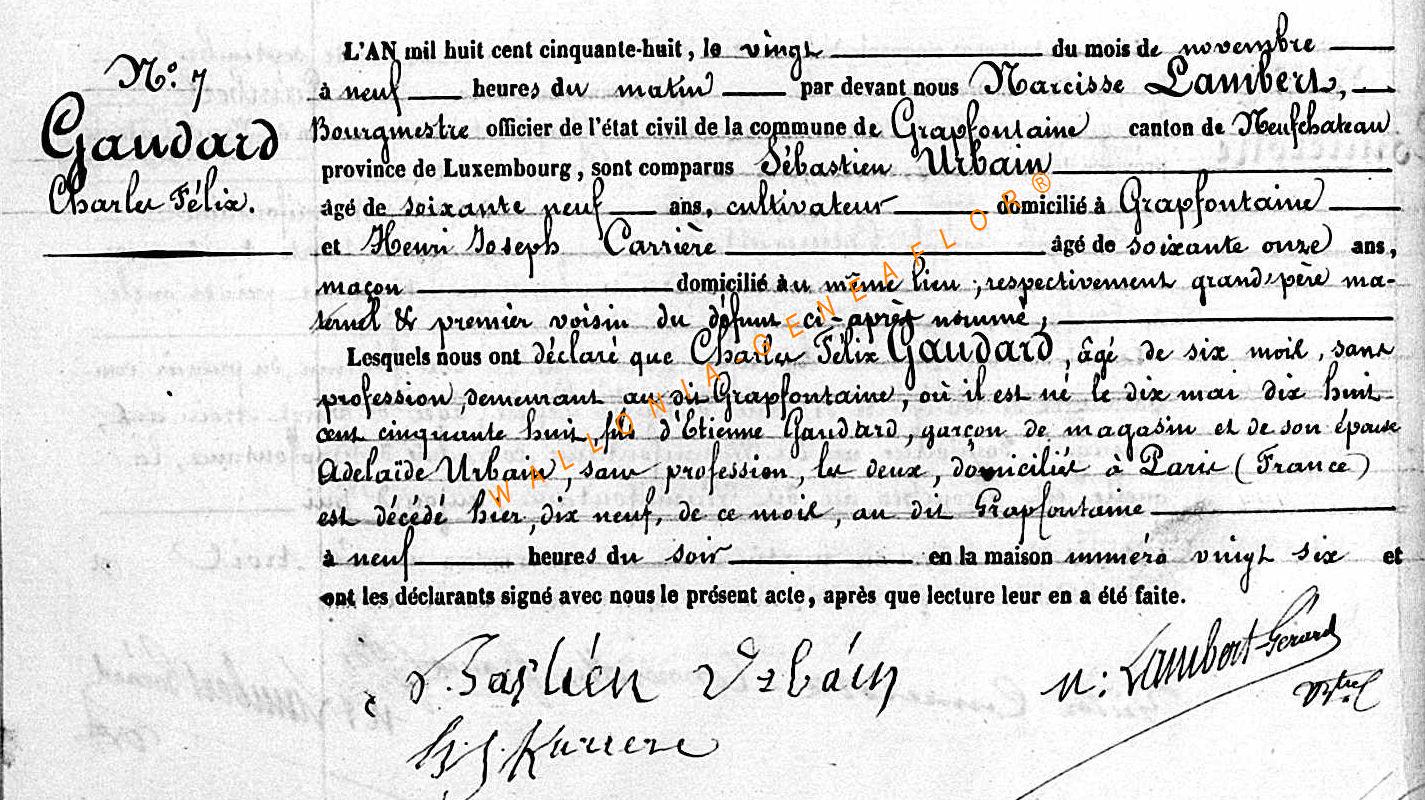 N.º 7
Gaudard
Charles Félix.
L'AN mil huit cent cinquante-huit, le vingt du mois de novembre
à neuf heures du matin par devant nous Narcisse Lambert,
Bourgmestre officier de l'état civil de la commune de Grapfontaine canton de Neufchateau
province de Luxembourg, sont comparus Sébastien Urbain
âgé de soixante neuf ans, cultivateur domicilié à Grapfontaine
et Henri Joseph Carrière âgé de soixante onze ans,
maçon domicilié au même lieu ; respectivement grand-père ma-
ternel & premier voisin du défunt ci-après nommé ,
Lesquels nous ont déclaré que Charles Félix Gaudard , âgé de six mois , sans
profession , demeurant au dit Grapfontaine , où il est né le dix mai dix huit
cent cinquante huit , fils d'Etienne Gaudard , garçon de magasin et de son épouse
Adelaïde Urbain , sans profession , les deux , domiciliés à Paris ( France )
est décédé hier , dix neuf , de ce mois , au dit Grapfontaine
à neuf heures du soir en la maison numéro vingt six et
ont les déclarants signé avec nous le présent acte, après que lecture leur en a été faite.
WALLONIA-GENEAFLOR®
Urbain
N: Lambert-Gérard